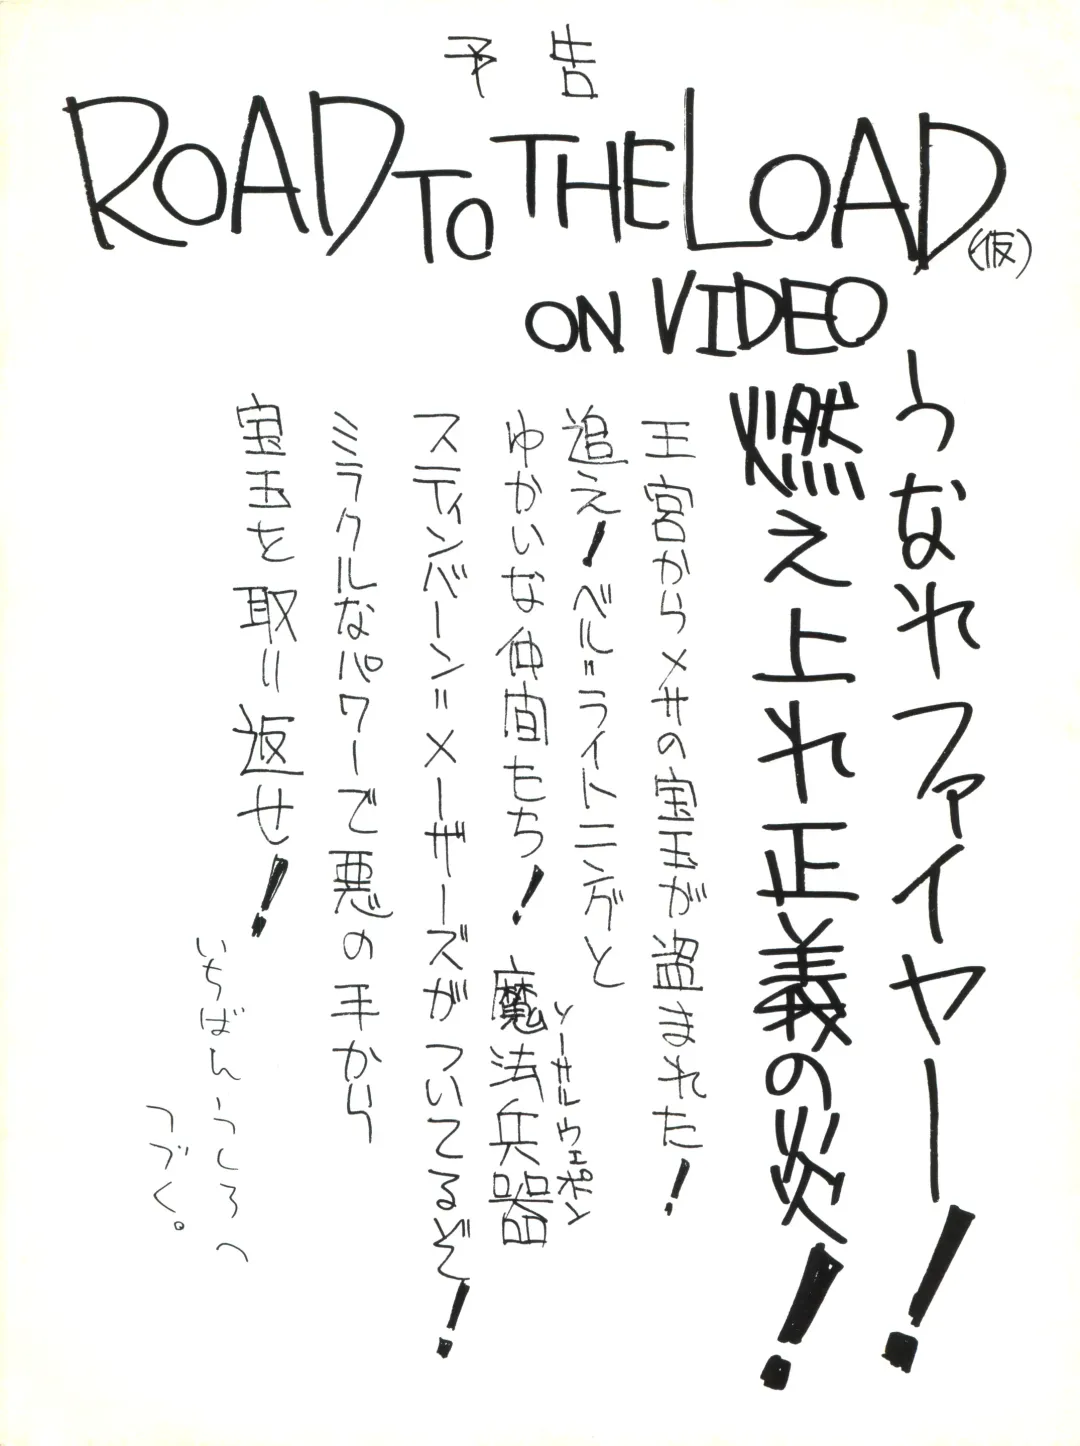 予告
ROAD TO THE LOAD(仮)
ON VIDEO
うなれファイヤー!
燃え上れ正義の炎!
王宮からメサの宝玉が盗まれた!
追え!ベル=ライトニングと
ゆかいな仲間もち!魔法兵器
ソーサルウェポン
スティンバーン=メーザーズがついてるぞ!
ミラクルなパワーで悪の手から
宝玉を取り返せ!
いちばんうしろへ
つづく。